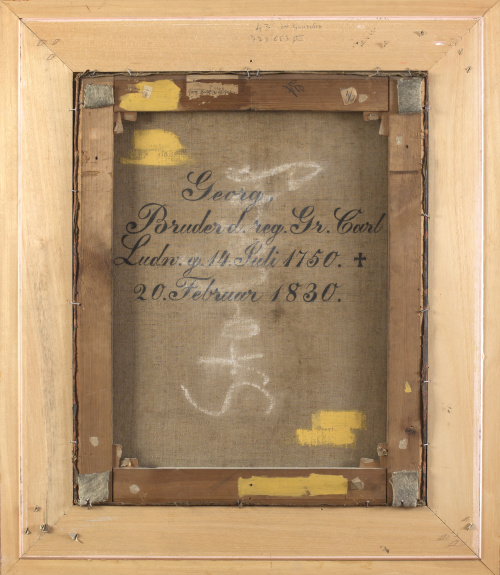 Georg,
Bruder d. reg. Gr. Carl
Ludw. g. 14. Juli 1750. +
20. Februar 1830.